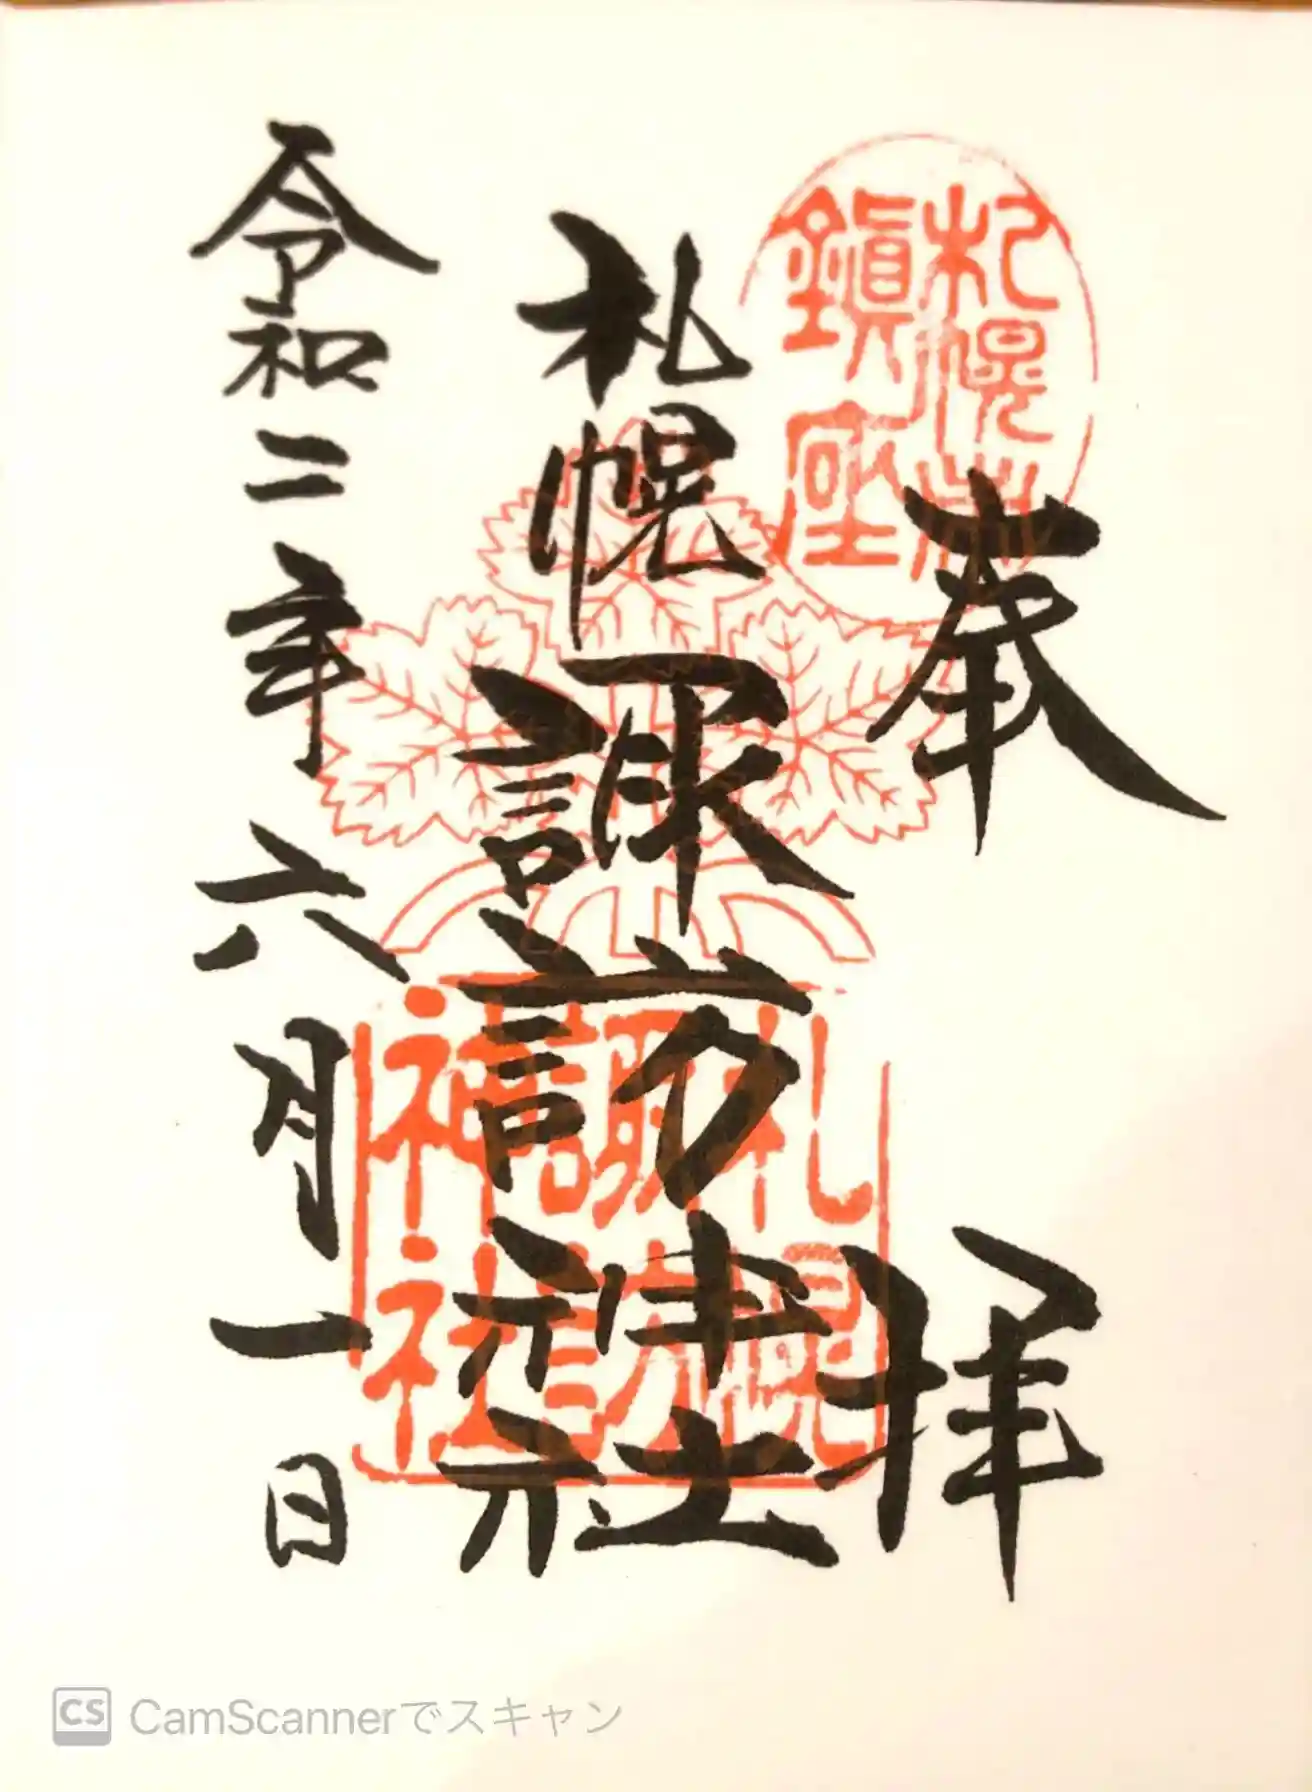 奉拝
札幌市鎮座
札幌諏訪神社
札幌諏訪神社
令和二年六月一日
CS CamScannerでスキャン